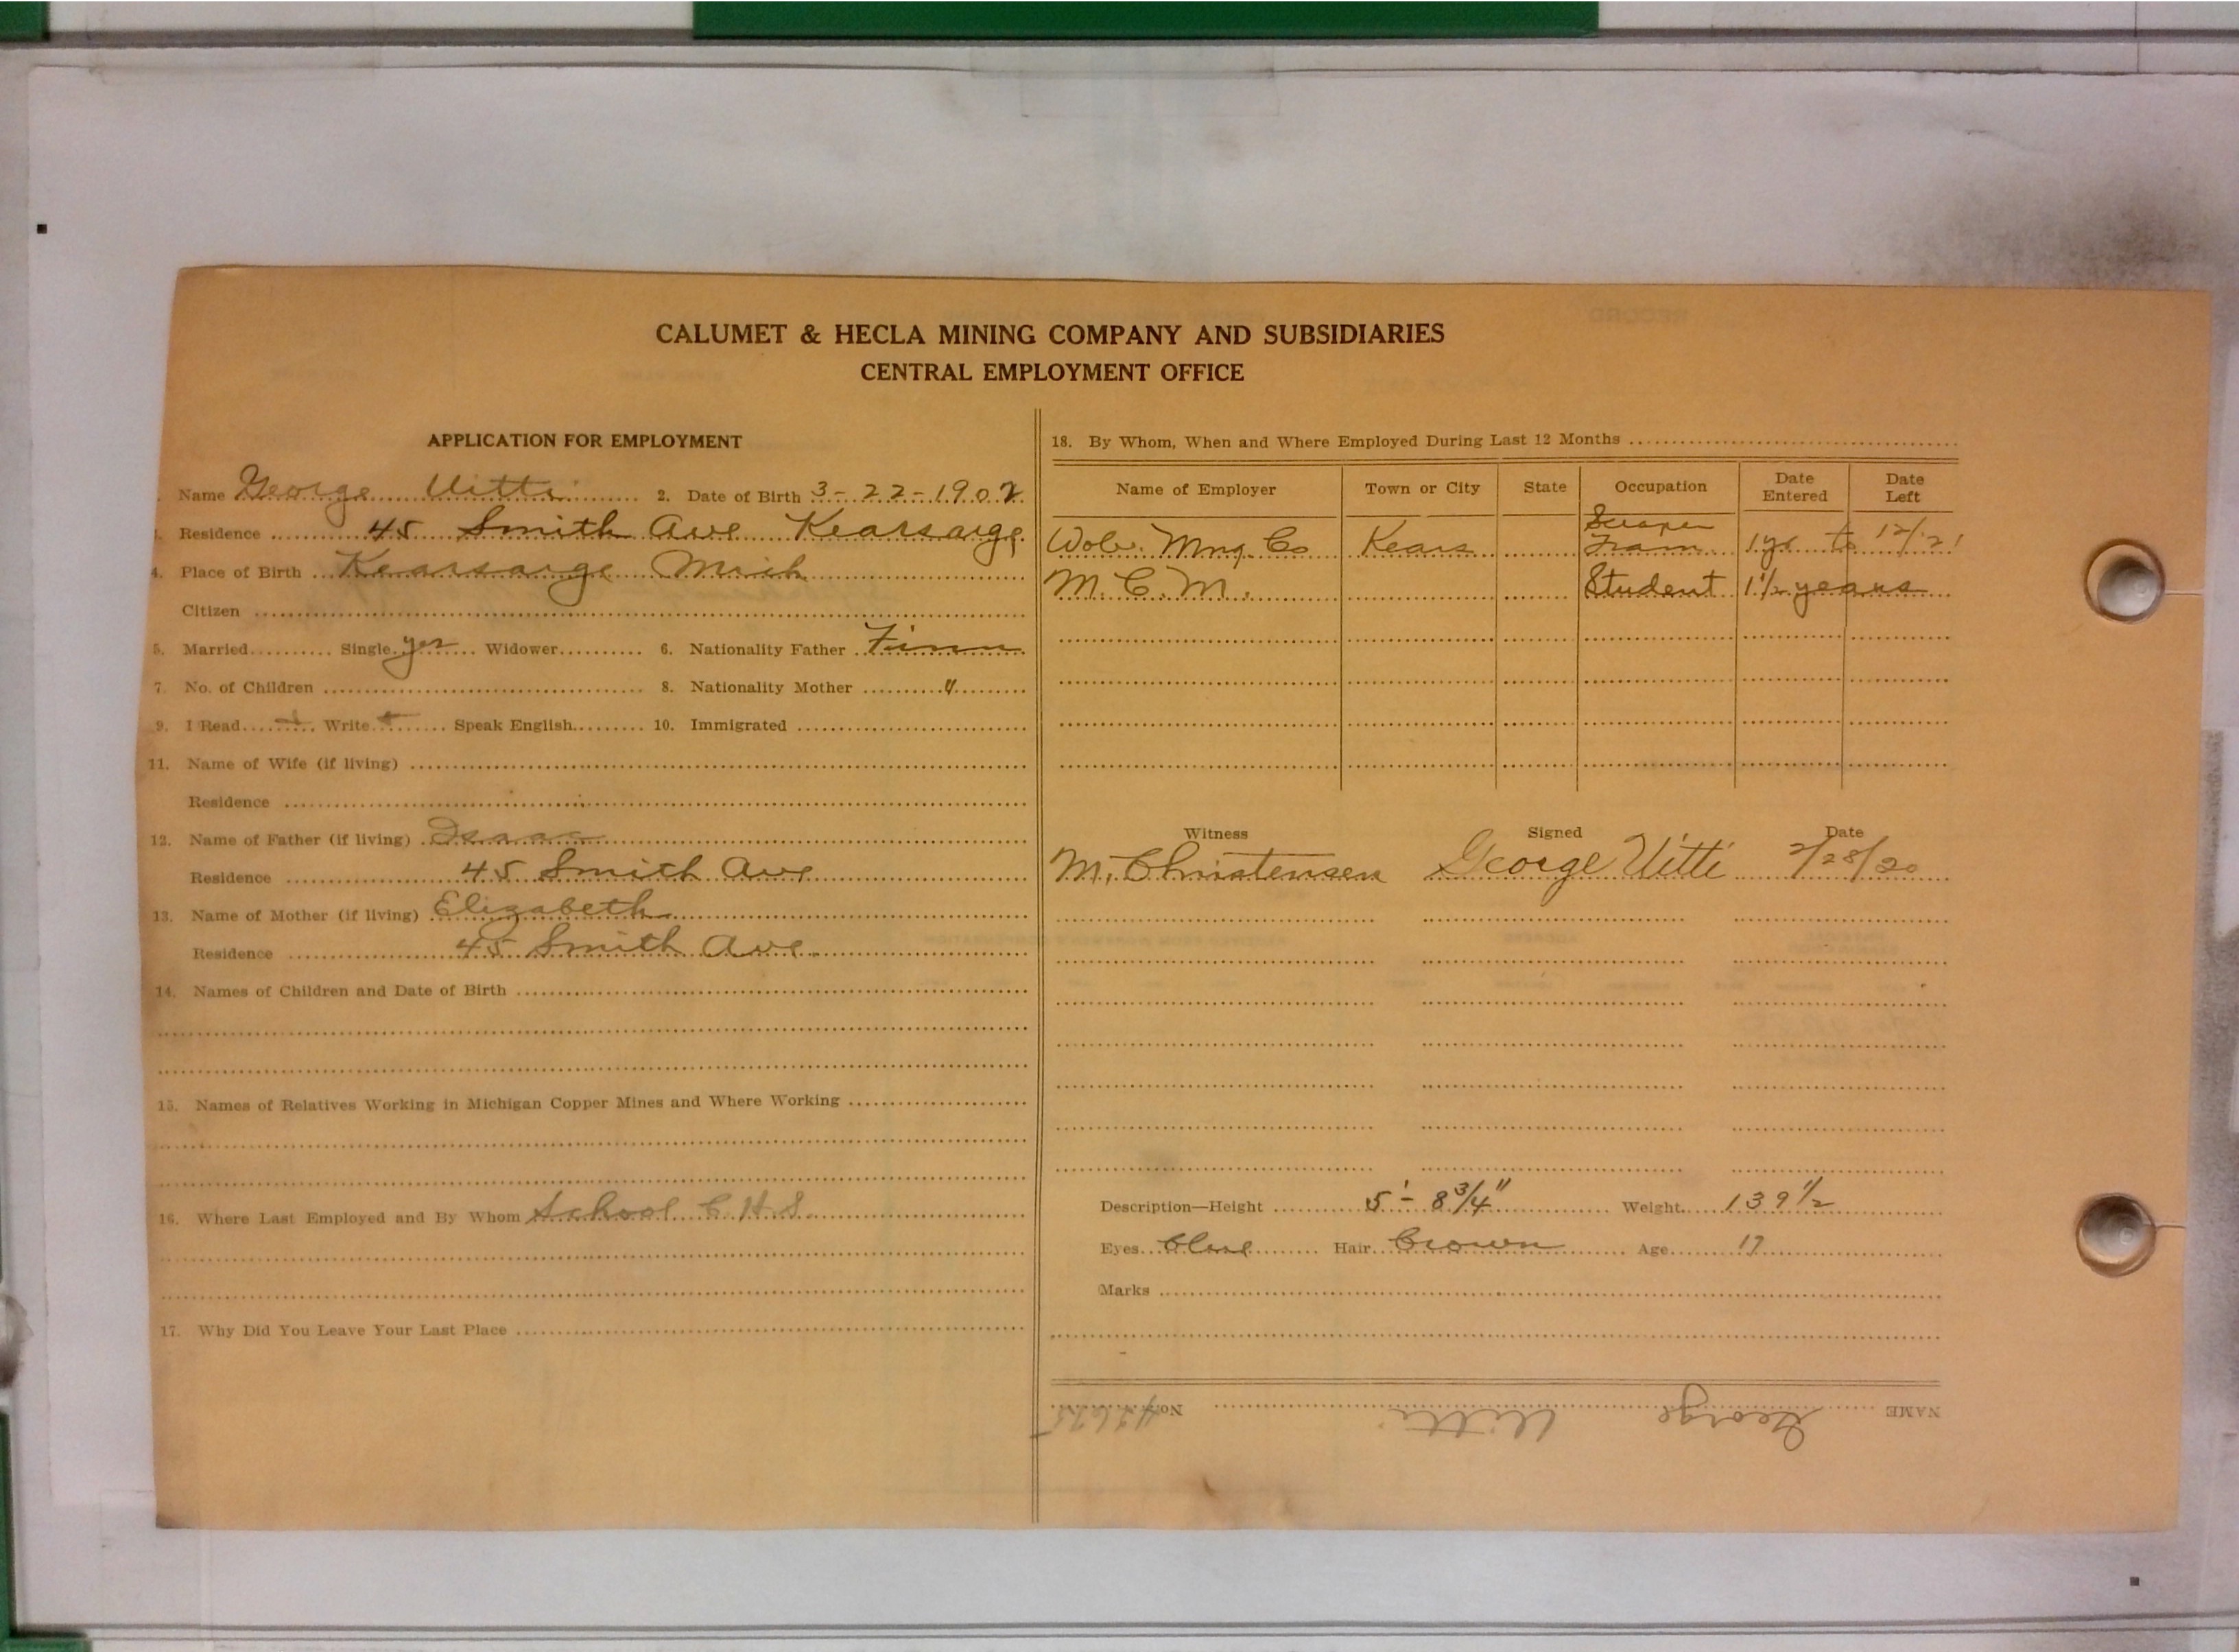 CALUMET & HECLA MINING COMPANY AND SUBSIDIARIES
CENTRAL EMPLOYMENT OFFICE
APPLICATION FOR EMPLOYMENT
Name George Uitti 2. Date of Birth 3-22-1902
3. Residence 45 Smith Ave Kearsarge
4. Place of Birth Kearsarge Mich
Citizen
5. Married Single yes Widower 6. Nationality Father Finn
7. No. of Children 8. Nationality Mother "
9. I Read Write Speak English 10. Immigrated
11. Name of Wife (if living)
Residence
12. Name of Father (if living) Isaac
Residence 45 Smith Ave
13. Name of Mother (if living) Elizabeth
Residence 45 Smith Ave.
14. Names of Children and Date of Birth
15. Names of Relatives Working in Michigan Copper Mines and Where Working
16. Where Last Employed and By Whom School C.H.S.
17. Why Did You Leave Your Last Place
18. By Whom, When and Where Employed During Last 12 Months
Name of Employer Town or City State Occupation Date Entered Date Left
Wolv. Mng. Co Kears Scraper Tram 1 yr to 12/21
M.C.M. Student 1 1/2 years
Witness Signed Date
M. Christensen George Uitti 2/28/20
Description—Height 5'-8 3/4" Weight 139 1/2
Eyes Blue Hair Brown Age 17
Marks
NAME George Uitti No.